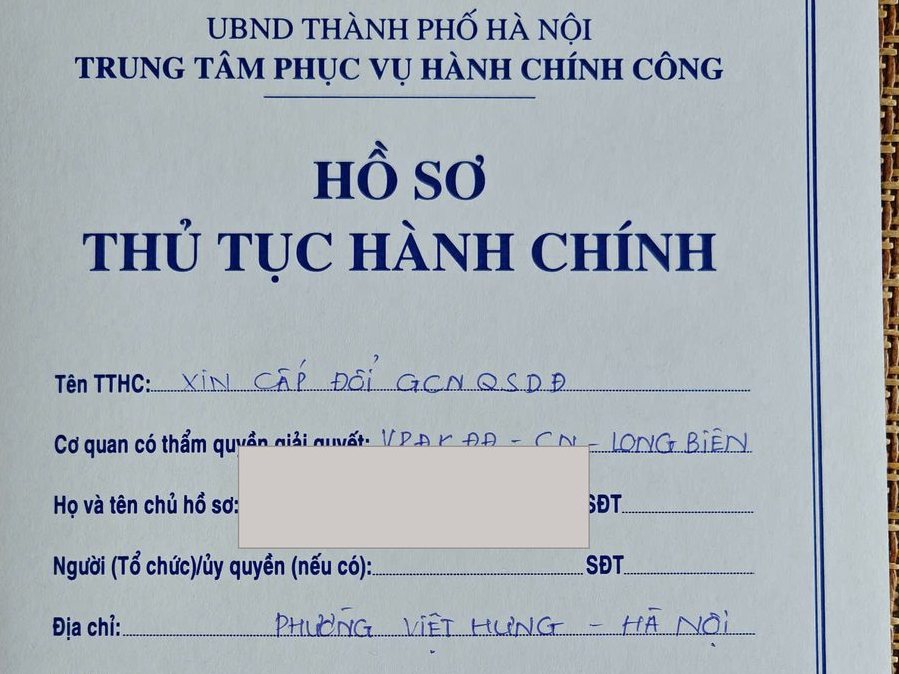 UBND THÀNH PHỐ HÀ NỘI
TRUNG TÂM PHỤC VỤ HÀNH CHÍNH CÔNG
HỒ SƠ
THỦ TỤC HÀNH CHÍNH
Tên TTHC: XIN CẤP ĐỔI GCNQSDĐ
Cơ quan có thẩm quyền giải quyết: VPĐKĐĐ - CN - LONG BIÊN
Họ và tên chủ hồ sơ: SĐT
Người (Tổ chức)/ủy quyền (nếu có): SĐT
Địa chỉ: PHƯỜNG VIỆT HƯNG - HÀ NỘI